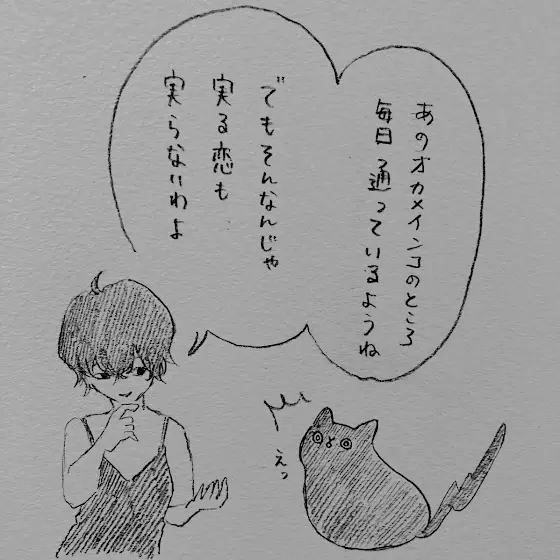 あのオカメインコのところ
毎日通っているようね
でもそんなんじゃ
実る恋も
実らないわよ
えっ